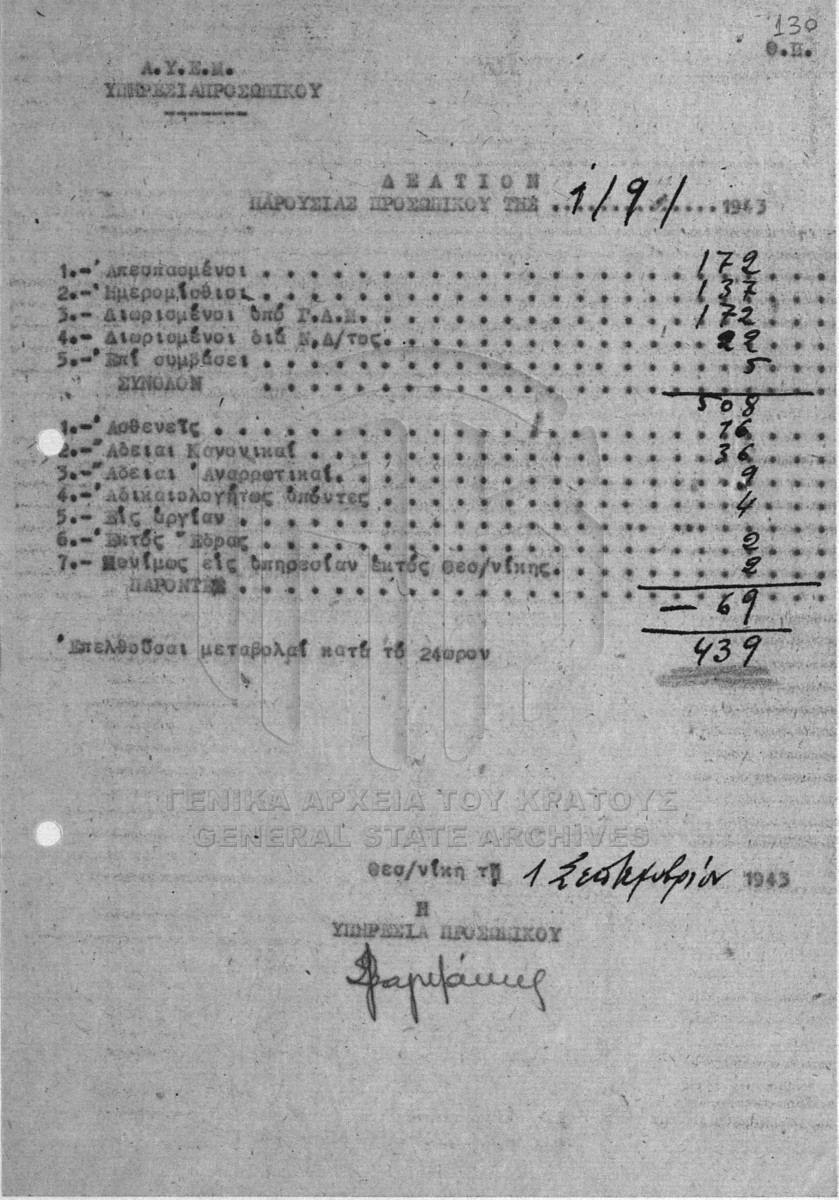 130
Θ.Π.
Α.Υ.Ε.Μ.
ΥΠΗΡΕΣΙΑΠΡΟΣΩΠΙΚΟΥ
ΔΕΛΤΙΟΝ
ΠΑΡΟΥΣΙΑΣ ΠΡΟΣΩΠΙΚΟΥ ΤΗΣ 1/9/ 1943
1.-'Απεσπασμένοι 172
2.-'Ημερομίσθιοι 137
3.- Διωρισμένοι ὑπό Γ.Δ.Μ. 172
4.- Διωρισμένοι διά Ν.Δ/τος. 22
5.-'Επί συμβάσει 5
ΣΥΝΟΛΟΝ 508
1.-'Ασθενεῖς 16
2.-"Αδειαι Κανονικαί 36
3.-"Αδειαι 'Αναρρωτικαί. 9
4.-'Αδικαιολογήτως ἀπόντες 4
5.- Είς ἀργίαν
6.-'Εκτός "Εδρας 2
7.- Μονίμως είς ὑπηρεσίαν ἐκτός Θεσ/νίκης. 2
ΠΑΡΟΝΤΕΣ — 69
'Επελθοῦσαι μεταβολαί κατά τό 24ωρον 439
ΓΕΝΙΚΑ ΑΡΧΕΙΑ ΤΟΥ ΚΡΑΤΟΥΣ
GENERAL STATE ARCHIVES
Θεσ/νίκη τῇ 1 Σεπτεμβρίου 1943
Η
ΥΠΗΡΕΣΙΑ ΠΡΟΣΩΠΙΚΟΥ